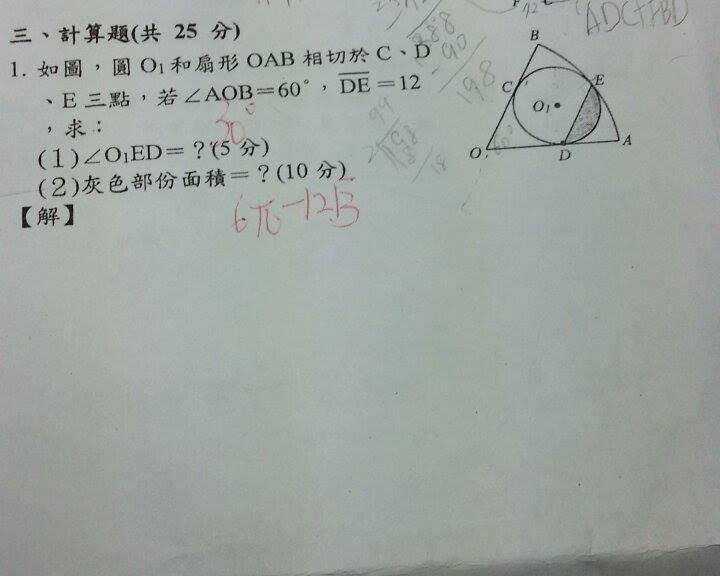 三、計算題(共 25 分)
1. 如圖，圓 O1 和扇形 OAB 相切於 C、D
、E 三點，若∠AOB＝60°，DE＝12
，求：
(1)∠O1ED＝？(5 分)
30°
(2)灰色部份面積＝？(10 分)
6π－12√3
【解】
B
C
E
O1
O
D
A
60°
12
ADC+FBD
888
-90
198
99
18